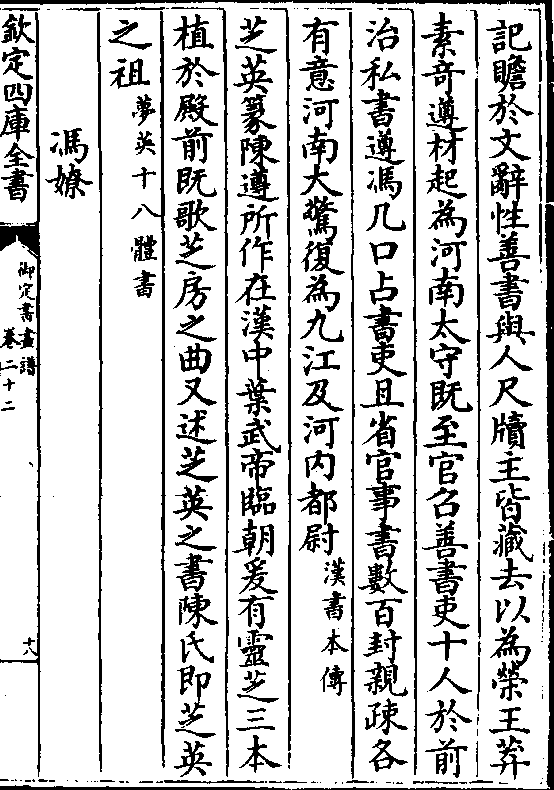 記贍於文辭性善書與人尺牘主皆藏去以為榮王莽
素竒遵材起為河南太守既至官召善書吏十人於前
治私書遵馮几口占書吏且省官事書數百封親疎各
有意河南大驚復為九江及河内都尉漢書本傳
芝英篆陳遵所作在漢中葉武帝臨朝爰有靈芝三本
植於殿前既歌芝房之曲又述芝英之書陳氏即芝英
之祖夢英十八體書
馮嫽
欽定四庫全書
御定書畫譜
卷二十二
十八